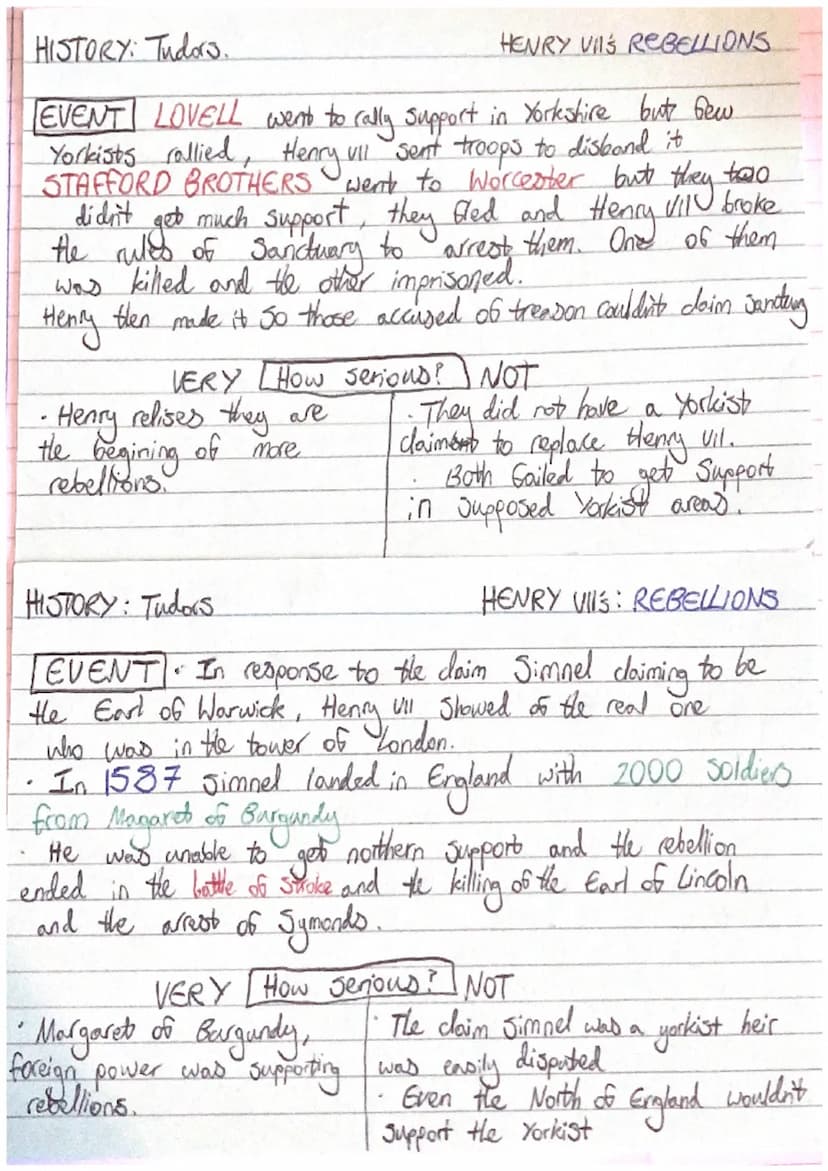 HISTORY: Tudors. HENRY VII's REBELLIONS
EVENT LOVELL went to rally support in Yorkshire but few
Yorkists rallied, Henry VII sent troops to disband it
STAFFORD BROTHERS went to Worcester but they too
didn't get much support, they fled and Henry VII broke
the rules of Sanctuary to arrest them. One of them
was killed and the other imprisoned.
Henry then made it so those accused of treason couldn't claim
VERY How serious? NOT
· Henry relises they are
the begining of more
rebellions.
· They did not have a Yorkist
claimant to replace Henry VII.
· Both failed to get support
in supposed Yorkist areas.
HISTORY: Tudors HENRY VII's: REBELLIONS
EVENT · In response to the claim Simnel claiming to be
the Earl of Warwick, Henry VII showed of the real one
who was in the tower of London.
· In 1587 Simnel landed in England with 2000 soldiers
from Magaret of Burgundy
· He was unable to get northern support and the rebellion
ended in the battle of Stroke and the killing of the Earl of Lincoln
and the arrest of Symonds.
VERY How serious? NOT
· Margaret of Burgundy,
foreign power was supporting
rebellions.
· The claim Simnel was a yorkist heir
was easily disputed
· Even the North of England wouldn't
support the Yorkist